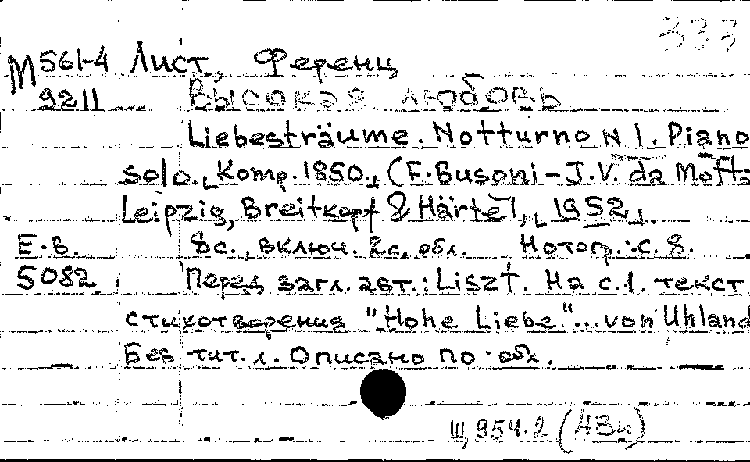 333
М 561-4 Лист, Ференц
9211 Высокая любовь
Liebesträume. Notturno N 1. Piano
solo. [Комп. 1850.] (F. Busoni - J.V. da Motta
Leipzig, Breitkopf & Härtel, [1952].
E.B. 8 с., включ. 2 с. обл. Нотогр.: с. 8.
5082 Перед загл. авт.: Liszt. На с. 1. текст
стихотворения "Hohe Liebe"... von Uhland
Без тит. л. Описано по обл.
Щ 954.2 (4Вн)